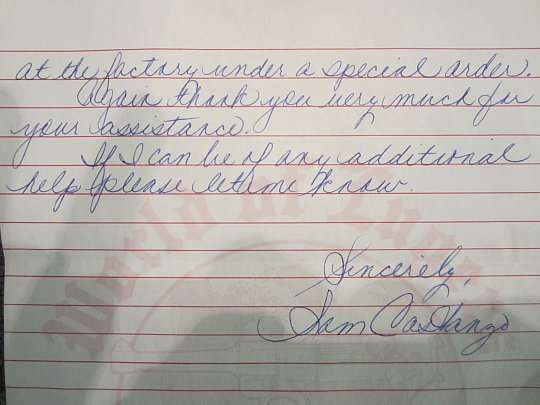 at the factory under a special order.
Again thank you very much for
your assistance.
If I can be of any additional
help please let me know.
Sincerely,
Sam
World of